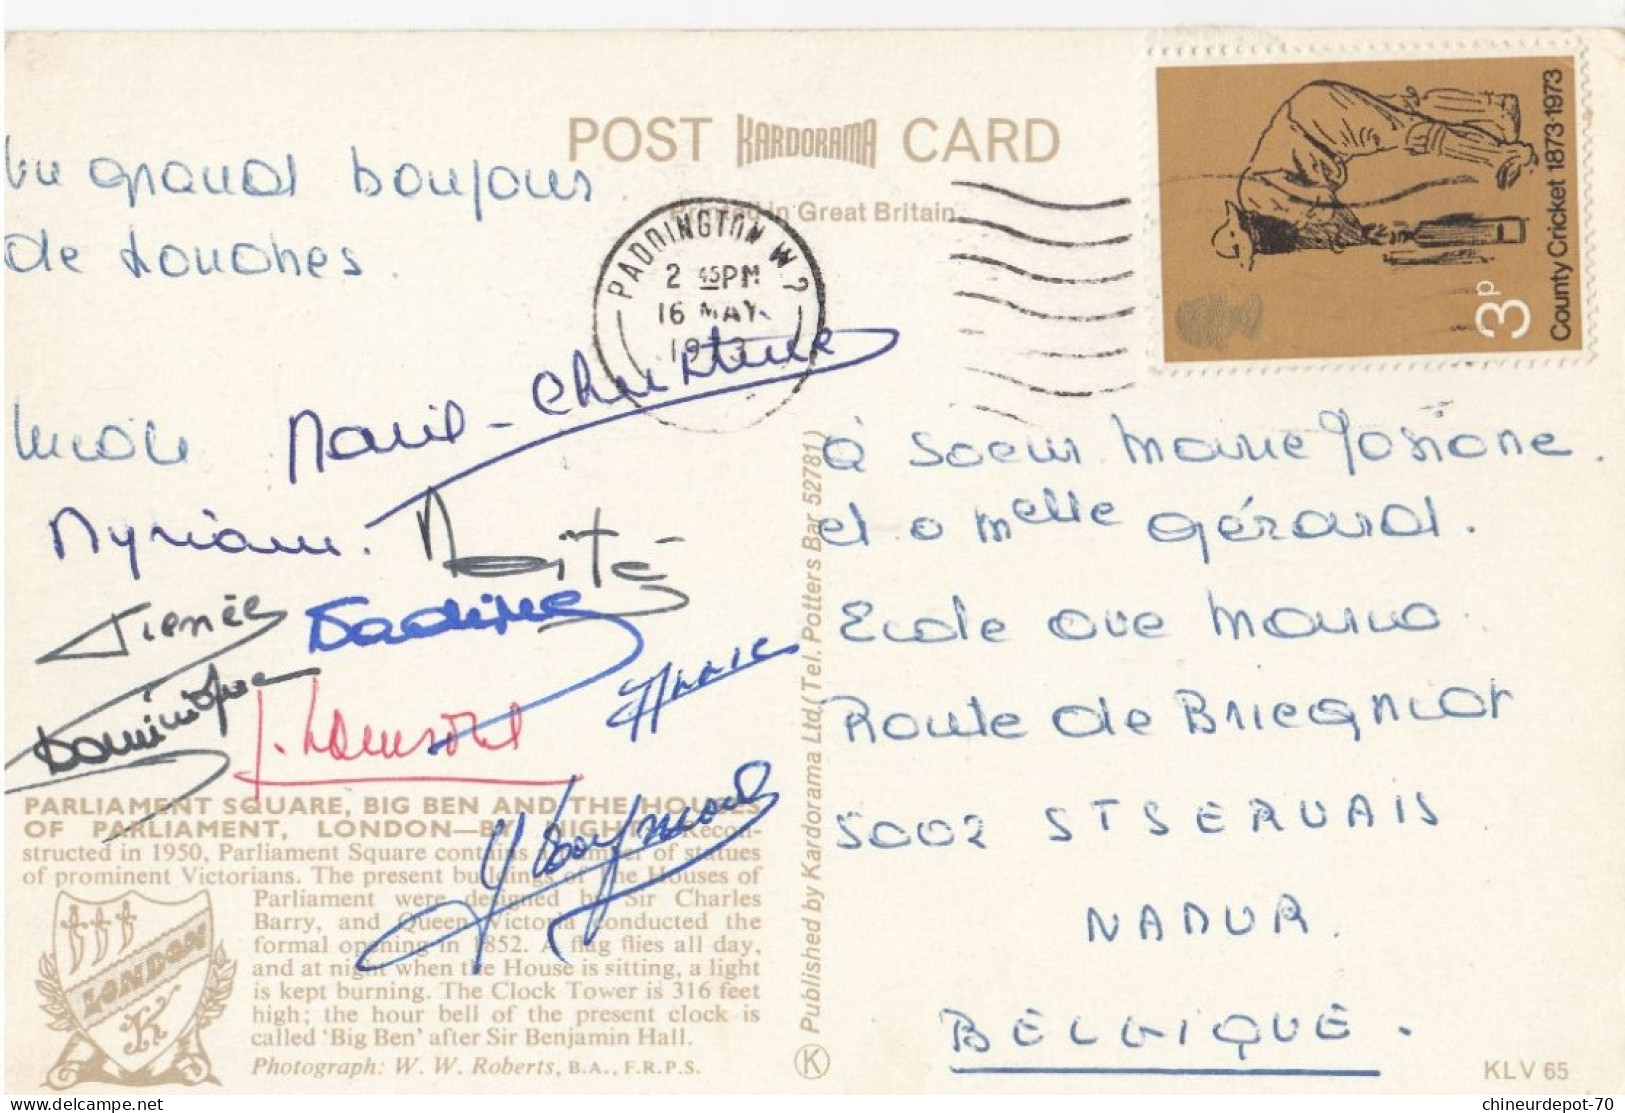 POST KARDORAMA CARD
Printed in Great Britain
Un grand bonjour
de Londres.
PADDINGTON W.2
2 45PM
16 MAY
1973
County Cricket 1873-1973
3p
Marie-Christine
Myriam. Maité
Renée Nadine
Dominique Annie
à Soeur Marie Josiane.
et à Melle Gérard.
Ecole Ave Maria
Route de Bricgniot
5002 ST SERVAIS
NAMUR.
BELGIQUE.
Published by Kardorama Ltd (Tel. Potters Bar 52781)
K
KLV 65
PARLIAMENT SQUARE, BIG BEN AND THE HOUSES
OF PARLIAMENT, LONDON—BY NIGHT. Recon-
structed in 1950, Parliament Square contains a number of statues
of prominent Victorians. The present buildings of The Houses of
Parliament were designed by Sir Charles
Barry, and Queen Victoria conducted the
formal opening in 1852. A flag flies all day,
and at night when the House is sitting, a light
is kept burning. The Clock Tower is 316 feet
high; the hour bell of the present clock is
called 'Big Ben' after Sir Benjamin Hall.
Photograph: W. W. Roberts, B.A., F.R.P.S.
LONDON
K
delcampe.net
chineurdepot-70